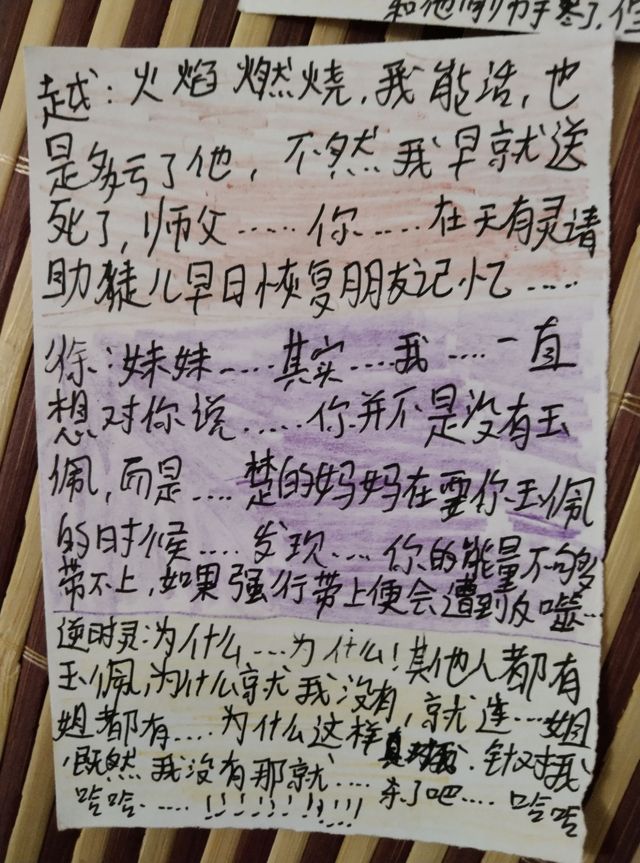 和他俩力事寒了,但
越:火焰燃烧,我能活,也
是多亏了他,不然我早就送
死了,师父……你……在天有灵请
助徒儿早日恢复朋友记忆……
徐:妹妹……其实……我……一直
想对你说……你并不是没有玉
佩,而是……楚的妈妈在要你玉佩
的时候……发现……你的能量不够
带不上,如果强行带上便会遭到反噬…
逆时灵:为什么……为什么!其他人都有
玉佩,为什么就我没有,就连…姐
姐都有……为什么这样针对我.
既然我没有那就……杀了吧……哈哈
哈哈……!!!!!!!!!